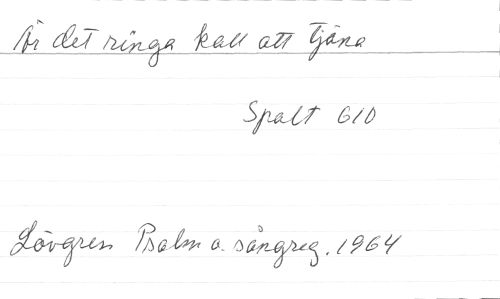 Är det ringa kall att tjäna
Spalt 610
Lövgren Psalm o. sångreg. 1964